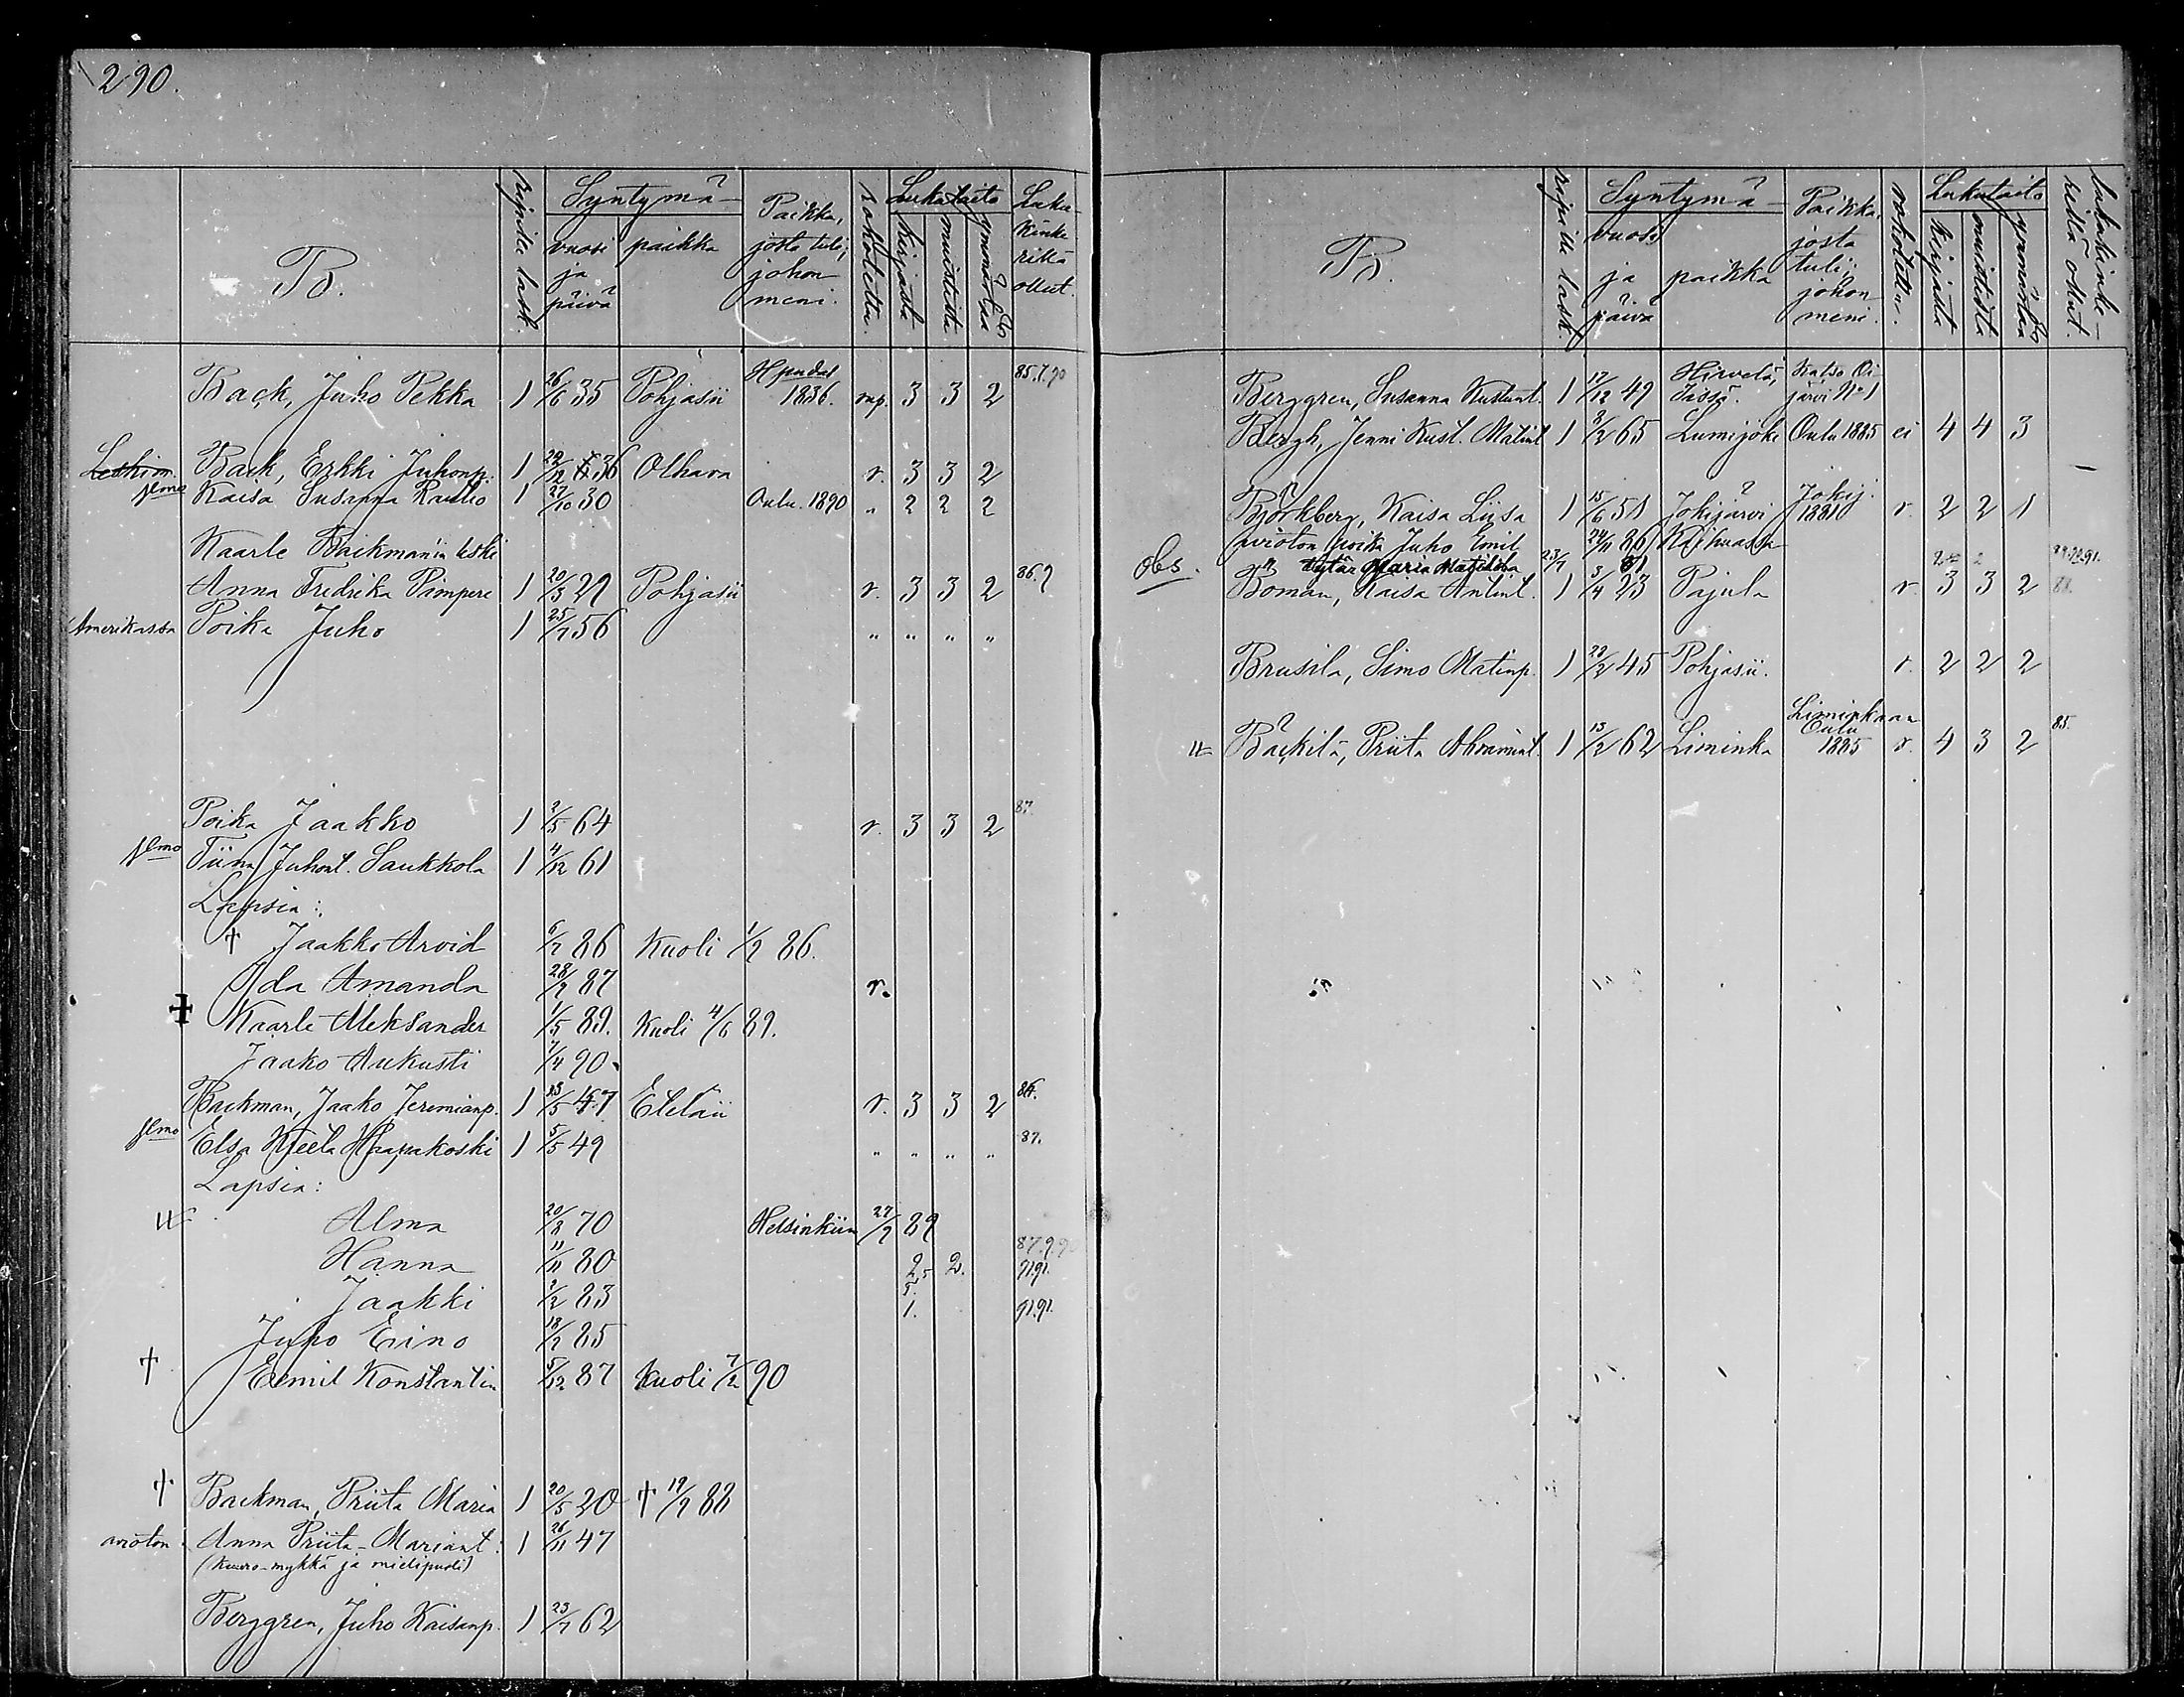 290.
B.
ripille lask.
Syntymä-
vuosi ja päivä
paikka
Paikka, josta tuli; johon meni.
rokotettu.
Lukutaito
kirjasta
muistista
ymmärtää
Luku-kinkerillä ollut.
Back, Juho Pekka 1 26/6 35 Pohjasii 1836. rup. 3 3 2 85.7.90
Leskim. Back, Erkki Juhonp. 1 29/12 36 Olhava r. 3 3 2
Vmo Kaisa Susanna Rautio 1 27/10 30 Oulu. 1890 „ 2 2 2
Kaarle Backman'in leski
Anna Fredrika Pämpere 1 20/3 29 Pohjasii r. 3 3 2 86.9
Amerikassa Poika Juho 1 25/7 56 „ „ „ „
Poika Jaakko 1 2/5 64 r. 3 3 2 87.
Vmo Tiina Juhont. Saukkola 1 4/12 61
Lapsia:
† Jaakko Arvid 6/7 86 Kuoli 1/9 86.
Ida Amanda 28/7 87 r.
‡ Kaarle Aleksander 1/5 89. Kuoli 4/6 89.
Jaako Aukusti 7/4 90.
Backman, Jaako Jeremianp. 1 23/5 47 Eteläii r. 3 3 2 86.
Vmo Elsa Kreeta Haapakoski 1 5/5 49 „ „ „ „ 87.
Lapsia:
Alma 20/8 70 Helsinkiin 27/9 89
Hanna 11/11 80 2,5 2. 87.9.90
Jaakki 2/2 83 1. 91.91.
Juho Eino 18/2 85
† Eemil Konstantin 5/12 87 Kuoli 7/2 90
† Backman, Priita Maria 1 20/5 20 † 19/9 88
avioton Anna Priita-Mariant. 1 26/11 47
(kuuro-mykkä ja mielipuoli)
Berggren, Juho Kaisanp. 1 23/7 62
B.
ripille lask.
Syntymä-
vuosi ja päivä
paikka
Paikka, josta tuli; johon meni.
rokotettu.
Lukutaito
kirjasta
muistista
ymmärtää
Lukukinke-rillä ollut.
Berggren, Susanna Kustant. 1 17/12 49 Hirvelä, Jässä. Katso Oijärvi No 1
Bergh, Jenni Kust. Matint. 1 3/2 65 Lumijoki Oulu 1885 ei 4 4 3
Björkberg, Kaisa Liisa 1 15/6 51 Jokijärvi Jokij. 1881 r. 2 2 1
avioton poika Juho Emil 24/11 86
tytär Maria Matilda 91
obs. Boman, Kaisa Antint. 1 3/4 23 Pajula r. 3 3 2
Brusila, Simo Matinp. 1 28/2 45 Pohjasii. r. 2 2 2
Bäckilä, Priita Abramint. 1 13/2 62 Liminka Liminkaan Oulu 1885 r. 4 3 2 85.